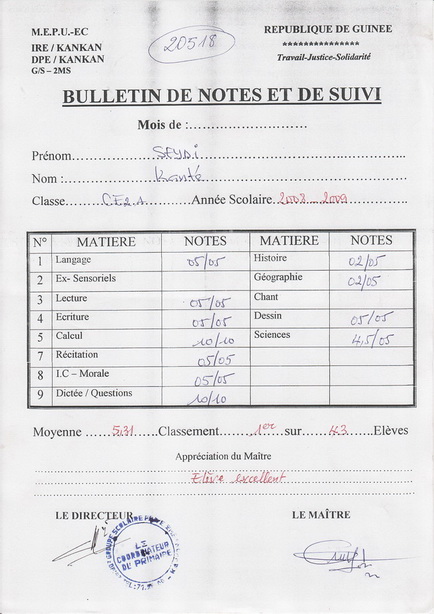 M.E.P.U.-EC
REPUBLIQUE DE GUINEE
20518
IRE / KANKAN
***************
DPE / KANKAN
Travail-Justice-Solidarité
G/S – 2MS
BULLETIN DE NOTES ET DE SUIVI
Mois de :
Prénom Seydi
Nom : Kanté
Classe CE2.A Année Scolaire 2008_2009
N° MATIERE NOTES MATIERE NOTES
1 Langage 05/05 Histoire 02/05
2 Ex- Sensoriels Géographie 02/05
3 Lecture 05/05 Chant
4 Ecriture 05/05 Dessin 05/05
5 Calcul 10/10 Sciences 4,5/05
7 Récitation 05/05
8 I.C – Morale 05/05
9 Dictée / Questions 10/10
Moyenne 5,31 Classement 1er sur 43 Elèves
Appréciation du Maître
Elève excellent
LE DIRECTEUR
LE MAÎTRE
LE
COORDINATEUR
DU PRIMAIRE